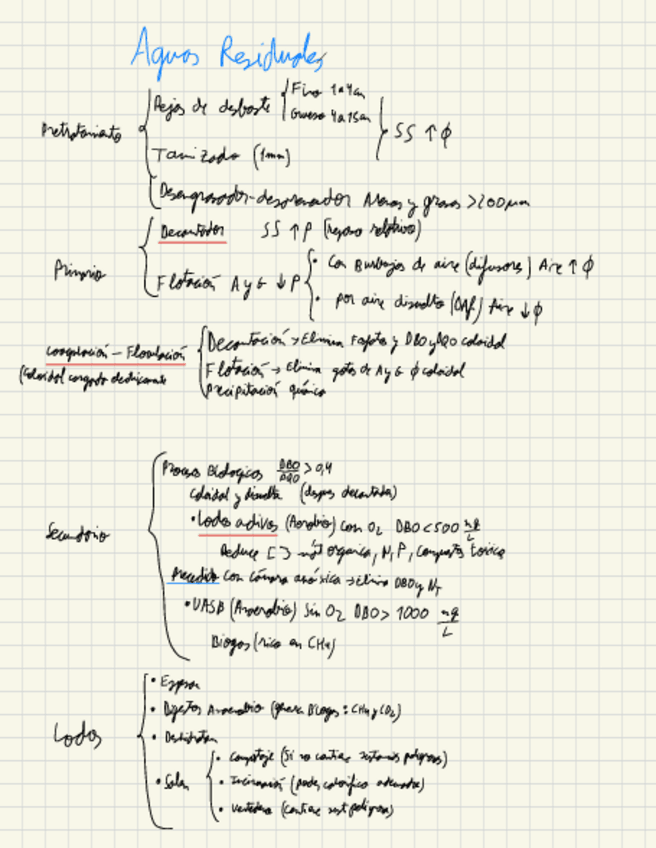 Aguas Residuales
Pretratamiento
Rejas de desbaste
Fino 1 a 4 cm
Grueso 4 a 15 cm
SS ↑ φ
Tamizado (1mm)
Desengrasador-desarenador Arenas y grasas >200μm
Primario
Decantador SS ↑ρ (reposo relativo)
Flotación A y G ↓ρ
• Con Burbujas de aire (difusores) Aire ↑ φ
• por aire disuelto (DAF) Aire ↓ φ
Coagulación - Floculación
(Coloidal cargado
Decantación → Elimina Fosfatos y DBO y DQO coloidal
Flotación → Elimina gotas de A y G φ coloidal
Precipitación química
Secundario
Procesos Biologicos DBO/DQO > 0,4
Coloidal y disuelta (despues decantador)
• Lodos activos (Aerobio) con O₂ DBO < 500 mg/L
Reduce [ ] mat organica, N, P, compuestos toxicos
Precedido con cámara anóxica → Elimina DBO y N_T
• UASB (Anaerobio) Sin O₂ DBO > 1000 mg/L
Biogas (rico en CH₄)
Lodos
• Espesar
• Digestor Anaerobio (genera Biogas: CH₄ y CO₂)
• Deshidratar
• Salen
• Compostaje (Si no contiene sustancias peligrosas)
• Incineración (poder calorifico adecuado)
• Vertedero (contiene sust peligrosa)